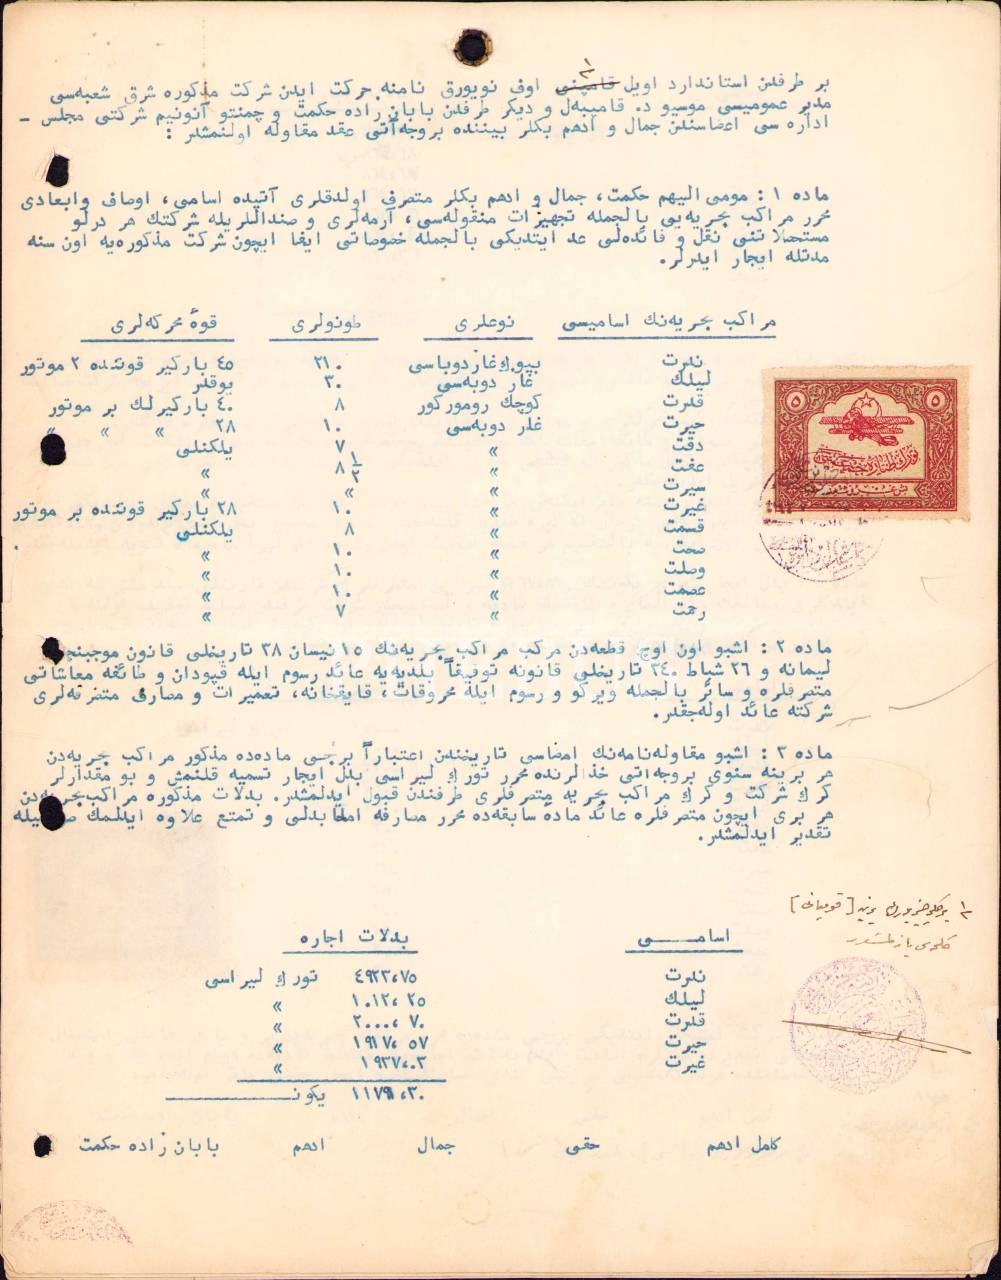 بر طرفدن استاندارد اویل قامپنی اوف نویورق نامنه حرکت ایدن شرکت مذکوره شرق شعبه‌سی
مدیر عمومیسی موسیو د. قامپبه‌ل و دیکر طرفدن بابان زاده حکمت و چمنتو آنونیم شرکتی مجلس -
اداره سی اعضاسندن جمال و ادهم بکلر بیننده بروجه‌آتی عقد مقاوله اولنمشدر :
ماده ۱ : مومی الیهم حکمت، جمال و ادهم بکلر متصرف اولدقلری آتیده اسامی، اوصاف وابعادی
محرر مراکب بحریه‌یی بالجمله تجهیزات منقوله‌سی، آرمه‌لری و صنداللریله شرکتك هر درلو
مستحصلاتنی نقل و فائده‌لی عد ایتدیکی بالجمله خصوصاتی ایفا ایچون شرکت مذکوره‌یه اون سنه
مدتله ایجار ایدرلر.
مراکب بحریه‌نك اسامیسی نوعلری طونولری قوهٔ محرکه‌لری
ندرت بیوك غاز دوباسی ۲۱۰ ۴۵ بارکیر قوتنده ۲ موتور
لیلك غاز دوبه‌سی ۳۰ یوقدر
قدرت کوچك روموركور ۸ ۴۰ بارکیرلك بر موتور
حیرت غاز دوبه‌سی ۱۰ ۲۸ » » »
دقت » ۷ یلکنلی
عفت » ۸ ۱/۲ »
سیرت » » »
غیرت » ۱۰ ۲۸ بارکیر قوتنده بر موتور
قسمت » ۸ یلکنلی
صحت » ۱۰ »
وصلت » ۱۰ »
عصمت » ۱۰ »
رحمت » ۷ »
ماده ۲ : اشبو اون اوچ قطعه‌دن مرکب مراکب بحریه‌نك ۱۵ نیسان ۳۸ تاریخلی قانون موجبنجه
لیمانه و ۲۶ شباط ۳۴۰ تاریخلی قانونه توفیقاً بلدیه‌یه عائد رسوم ایله قپودان و طائفه معاشاتی
متصرفلره و سائر بالجمله ویرکو و رسوم ایله محروقات، قایقخانه، تعمیرات و مصارف متفرقه‌لری
شرکته عائد اوله‌جقدر.
ماده ۳ : اشبو مقاوله‌نامه‌نك امضاسی تاریخندن اعتباراً برنجی ماده‌ده مذکور مراکب بحریه‌دن
هر برینه سنوی بروجه‌آتی حذالرنده محرر تورك لیراسی بدل ایجار تسمیه قلنمش و بو مقدارلر
کرك شرکت و کرك مراکب بحریه متصرفلری طرفندن قبول ایدلمشدر. بدلات مذکوره مراکب‌بحریه‌دن
هر بری ایچون متصرفلره عائد ماده سابقه‌ده محرر مصارفه امحا بدلی و تمتع علاوه ایدلمك صورتیله
تقدیر ایدلمشدر.
اسامــی بدلات اجاره
ندرت ۴۹۲۳،۷۵ تورك لیراسی
لیلك ۱۰۱۲،۲۵ »
قدرت ۲۰۰۰،۷۰ »
حیرت ۱۹۱۷،۵۷ »
غیرت ۱۹۳۷،۰۳ »
۱۱۷۹۱،۳۰ یکونــ
کامل ادهم حقی جمال ادهم بابان زاده حکمت